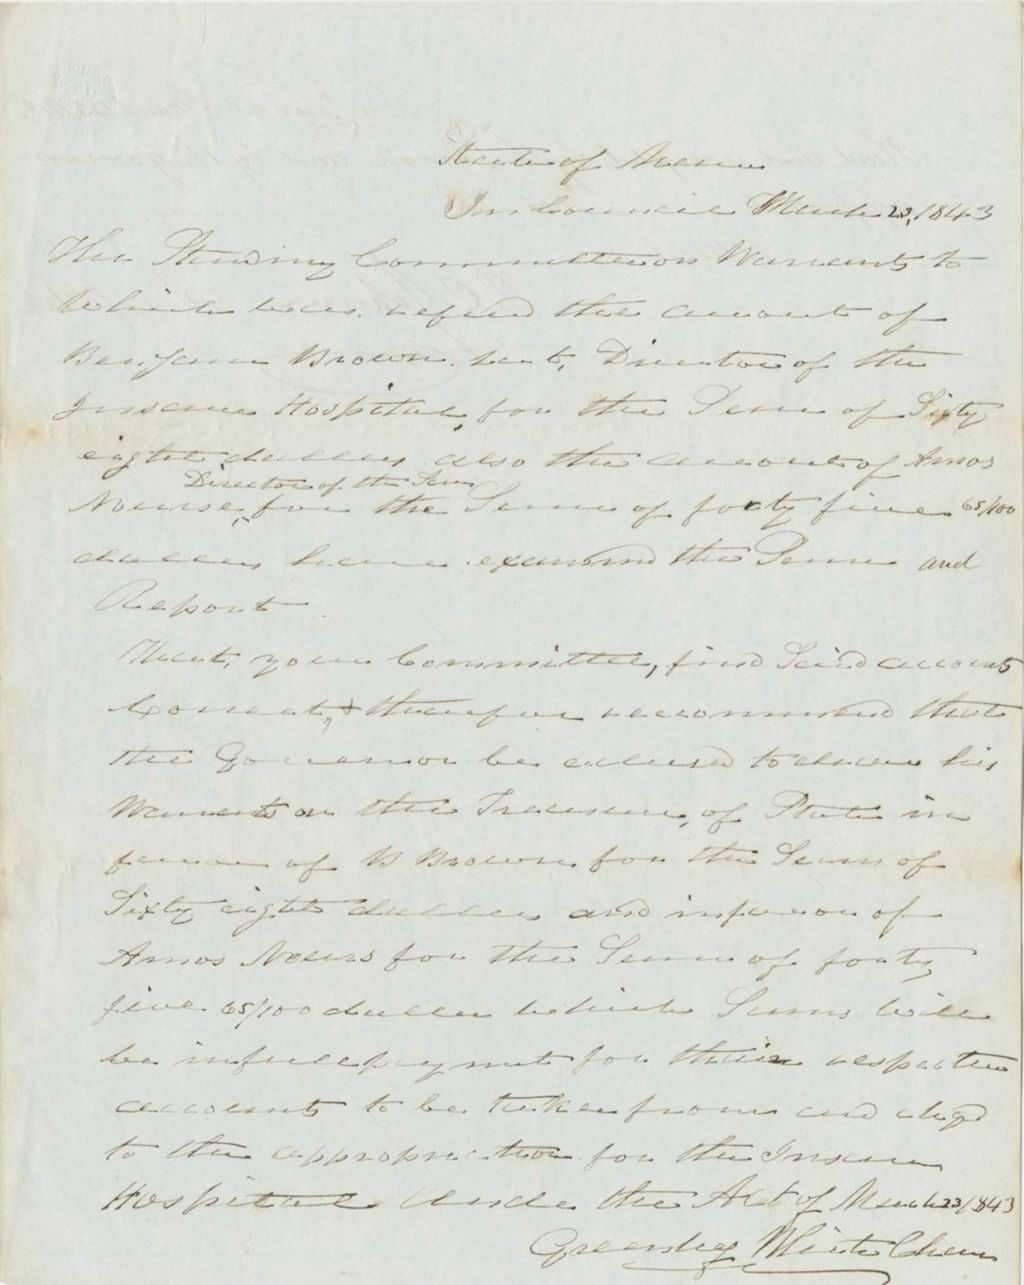 State of Maine
In Council March 23, 1843
The Standing Committee on Warrants to
Which was refered the account of
Benjamin Brown late, Director of the
Insane Hospital, for the Sum of Sixty
eight dollars also the account of Amos
Director of the Same
Nourse, for the Sum of forty five 65/100
dollars have examined the Same and
Report
That, your Committee, find Said account
Correct, & therefore reccommend that
the Governor be advised to draw his
Warrants on the Treasurer, of State in
favor of B Brown for the Sum of
Sixty eight dollars and in favor of
Amos Nours for the Sum of forty
five 65/100 dollars which Sums Will
be in full payment for their respective
accounts to be taken from and chgd
to the appropriation for the Insane
Hospital Under the Act of March 23/1843
Greenlief White Chair